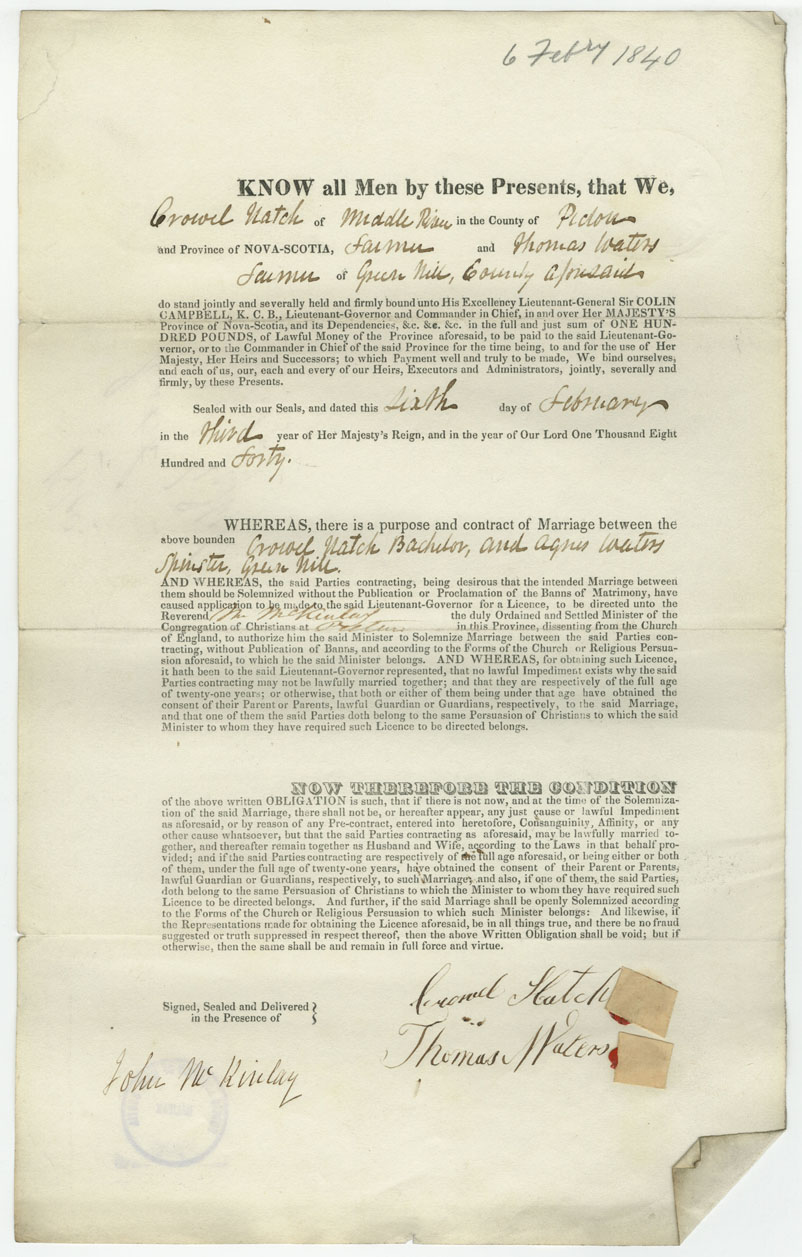 6 Febry 1840
KNOW all Men by these Presents, that We,
Crowel Hatch of Middle River in the County of Pictou
and Province of NOVA-SCOTIA, Farmer and Thomas Waters
Farmer of Green Hill, County aforesaid
do stand jointly and severally held and firmly bound unto His Excellency Lieutenant-General Sir COLIN
CAMPBELL, K. C. B., Lieutenant-Governor and Commander in Chief, in and over Her MAJESTY'S
Province of Nova-Scotia, and its Dependencies, &c. &c. &c. in the full and just sum of ONE HUN-
DRED POUNDS, of Lawful Money of the Province aforesaid, to be paid to the said Lieutenant-Go-
vernor, or to the Commander in Chief of the said Province for the time being, to and for the use of Her
Majesty, Her Heirs and Successors; to which Payment well and truly to be made, We bind ourselves,
and each of us, our, each and every of our Heirs, Executors and Administrators, jointly, severally and
firmly, by these Presents.
Sealed with our Seals, and dated this Sixth day of February
in the third year of Her Majesty's Reign, and in the year of Our Lord One Thousand Eight
Hundred and Forty.
WHEREAS, there is a purpose and contract of Marriage between the
above bounden Crowel Hatch Bachelor, and Agnes Waters
Spinster, Green Hill.
AND WHEREAS, the said Parties contracting, being desirous that the intended Marriage between
them should be Solemnized without the Publication or Proclamation of the Banns of Matrimony, have
caused application to be made to the said Lieutenant-Governor for a Licence, to be directed unto the
Reverend Mr. McKinlay the duly Ordained and Settled Minister of the
Congregation of Christians at Pictou in this Province, dissenting from the Church
of England, to authorize him the said Minister to Solemnize Marriage between the said Parties con-
tracting, without Publication of Banns, and according to the Forms of the Church or Religious Persua-
sion aforesaid, to which he the said Minister belongs. AND WHEREAS, for obtaining such Licence,
it hath been to the said Lieutenant-Governor represented, that no lawful Impediment exists why the said
Parties contracting may not be lawfully married together; and that they are respectively of the full age
of twenty-one years; or otherwise, that both or either of them being under that age have obtained the
consent of their Parent or Parents, lawful Guardian or Guardians, respectively, to the said Marriage,
and that one of them the said Parties doth belong to the same Persuasion of Christians to which the said
Minister to whom they have required such Licence to be directed belongs.
NOW THEREFORE THE CONDITION
of the above written OBLIGATION is such, that if there is not now, and at the time of the Solemniza-
tion of the said Marriage, there shall not be, or hereafter appear, any just cause or lawful Impediment
as aforesaid, or by reason of any Pre-contract, entered into heretofore, Consanguinity, Affinity, or any
other cause whatsoever, but that the said Parties contracting as aforesaid, may be lawfully married to-
gether, and thereafter remain together as Husband and Wife, according to the Laws in that behalf pro-
vided; and if the said Parties contracting are respectively of the full age aforesaid, or being either or both
of them, under the full age of twenty-one years, have obtained the consent of their Parent or Parents,
lawful Guardian or Guardians, respectively, to such Marriage, and also, if one of them, the said Parties,
doth belong to the same Persuasion of Christians to which the Minister to whom they have required such
Licence to be directed belongs. And further, if the said Marriage shall be openly Solemnized according
to the Forms of the Church or Religious Persuasion to which such Minister belongs: And likewise, if
the Representations made for obtaining the Licence aforesaid, be in all things true, and there be no fraud
suggested or truth suppressed in respect thereof, then the above Written Obligation shall be void; but if
otherwise, then the same shall be and remain in full force and virtue.
Signed, Sealed and Delivered
in the Presence of
Crowel Hatch
Thomas Waters
John McKinlay